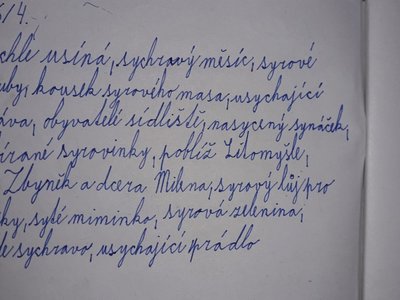 /4.
usíná, sychravý měsíc, syrové
kousek syrového masa, usychající
obyvatelé sídliště, nasycený synáček,
syrovinky, poblíž Litomyšle,
Zbyněk a dcera Milena, syrový lůj pro
syté miminko, syrová zelenina,
sychravo, usychající prádlo